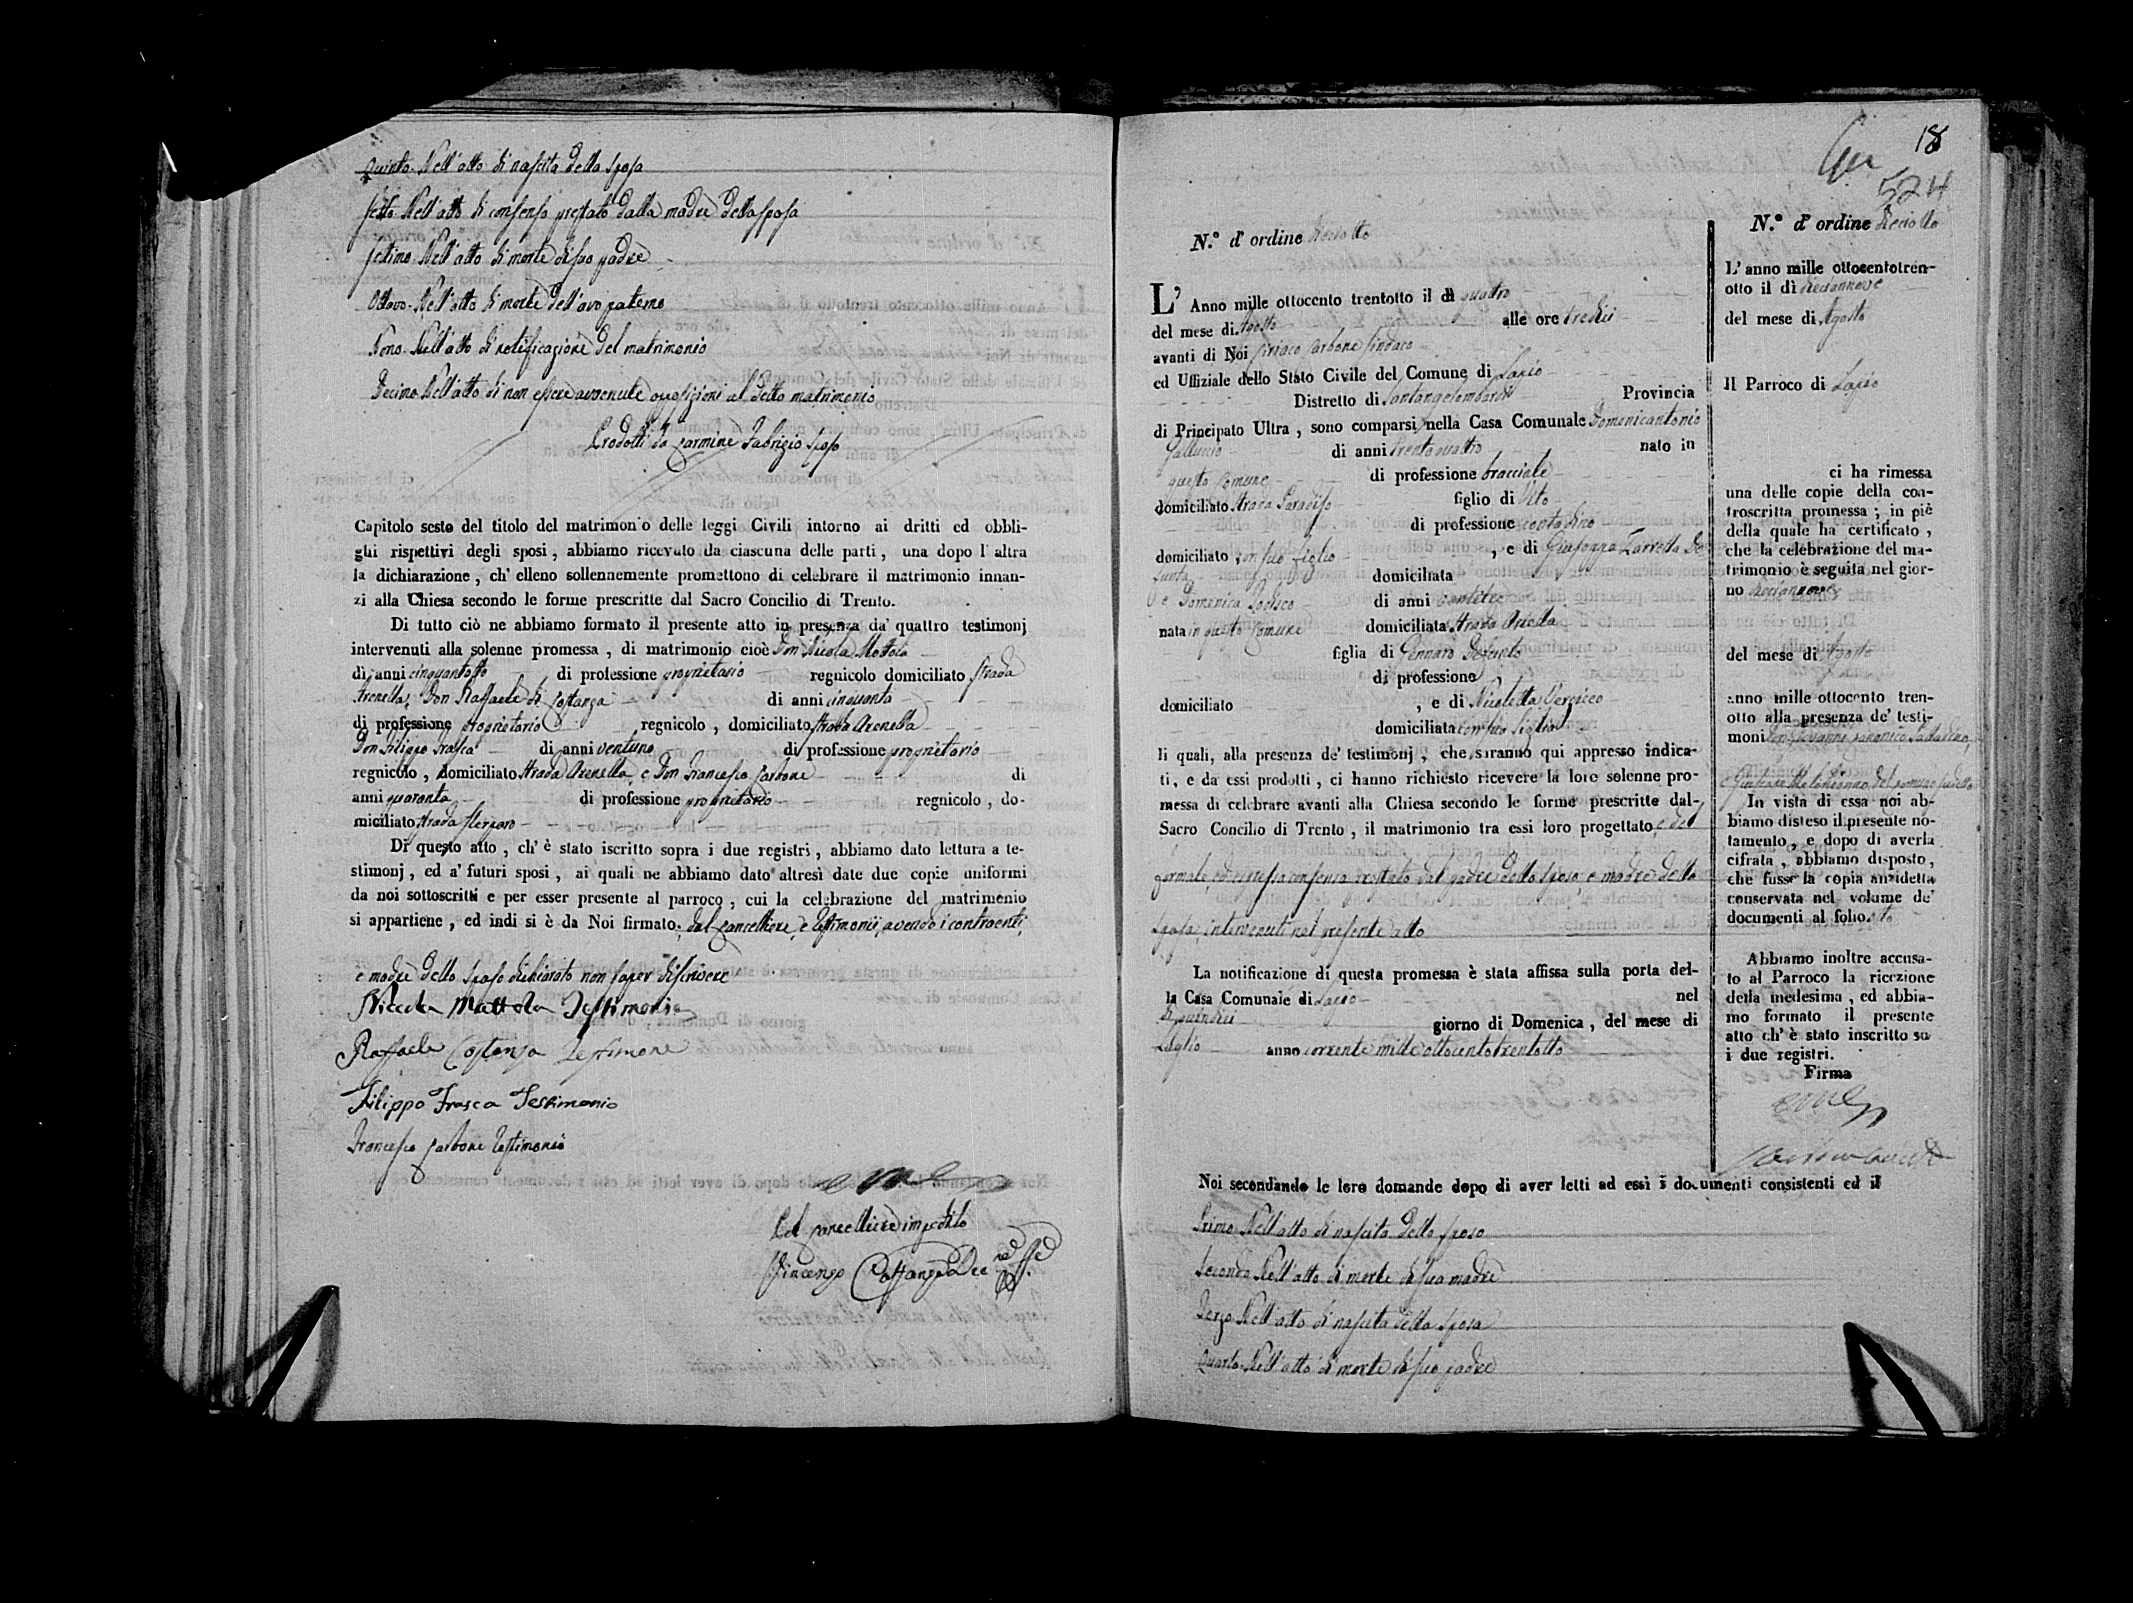 Quinto. Nell'atto di nascita della sposa
Sesto Nell'atto di consenso prestato dalla madre della sposa
Settimo Nell'atto di morte di suo padre
Ottavo. Nell'atto di morte dell'avo paterno
Nono. Nell'atto di notificazione del matrimonio
Decimo Nell'atto di non essere avvenute opposizioni al detto matrimonio
Prodotti da Carmine Fabrizio sposo
Capitolo sesto del titolo del matrimonio delle leggi Civili intorno ai dritti ed obbli-
ghi rispettivi degli sposi, abbiamo ricevuto da ciascuna delle parti, una dopo l'altra
la dichiarazione, ch'elleno sollennemente promettono di celebrare il matrimonio innan-
zi alla Chiesa secondo le forme prescritte dal Sacro Concilio di Trento.
Di tutto ciò ne abbiamo formato il presente atto in presenza da' quattro testimonj
intervenuti alla solenne promessa, di matrimonio cioè Don Nicola Mottola
di anni cinquantotto di professione proprietario regnicolo domiciliato strada
Arenella, Don Raffaele di Costanza di anni cinquanta
di professione proprietario regnicolo, domiciliato strada Arenella
Don Filippo Frasca di anni ventuno di professione proprietario
regnicolo, domiciliato strada Arenella, e Don Francesco Carbone di
anni quaranta di professione proprietario regnicolo, do-
miciliato strada
Di questo atto, ch'è stato iscritto sopra i due registri, abbiamo dato lettura a te-
stimonj, ed a' futuri sposi, ai quali ne abbiamo dato altresì date due copie uniformi
da noi sottoscritti e per esser presente al parroco, cui la celebrazione del matrimonio
si appartiene, ed indi si è da Noi firmato, dal Cancelliere, e testimonii, avendo i contraenti,
e madre dello sposo dichiarato non saper di scrivere
Niccola Mottola Testimonio
Raffaele Costanza Testimone
Filippo Frasca Testimonio
Francesco Carbone testimonio
Pel Cancelliere impedito
Vincenzo
18
524
N.° d' ordine Deciotto
L' Anno mille ottocento trentotto il dì quattro
del mese di Agosto alle ore tredici
avanti di Noi Ciriaco Carbone Sindaco
ed Uffiziale dello Stato Civile del Comune di Lacio
Distretto di Santangelombardi Provincia
di Principato Ultra, sono comparsi nella Casa Comunale Domenicantonio
Gallucio di anni trentaquattro nato in
questo Comune di professione bracciale
domiciliato strada Paradiso figlio di Vito
di professione contadino
domiciliato con suo figlio, e di Giuseppa Zarrella De
funta domiciliata
e Domenica di anni ventitre
nata in questo Comune domiciliata strada
figlia di Gennaro Defunto
di professione
domiciliato, e di Nicoletta
domiciliata con sua figlia
li quali, alla presenza de' testimonj, che saranno qui appresso indica-
ti, e da essi prodotti, ci hanno richiesto ricevere la loro solenne pro-
messa di celebrare avanti alla Chiesa secondo le forme prescritte dal-
Sacro Concilio di Trento, il matrimonio tra essi loro progettato, e del
formale, ed espresso consenso prestato dal padre dello sposo, e madre della
sposa, intervenuti nel presente atto
La notificazione di questa promessa è stata affissa sulla porta del-
la Casa Comunale di Lacio nel
dì quindici giorno di Domenica, del mese di
Luglio anno corrente mille ottocento trentotto
N.° d' ordine Deciotto
L' anno mille ottocentotren-
otto il dì diecannove
del mese di Agosto
Il Parroco di Lacio
ci ha rimessa
una delle copie della con-
troscritta promessa; in piè
della quale ha certificato,
che la celebrazione del ma-
trimonio è seguita nel gior-
no diecannove
del mese di Agosto
anno mille ottocento tren-
otto alla presenza de' testi-
moni Don Giovanni Canonico
del Comune suddetto
In vista di essa noi ab-
biamo disteso il presente no-
tamento, e dopo di averla
cifrata, abbiamo disposto,
che fusse la copia anzidetta
conservata nel volume de'
documenti al folio
Abbiamo inoltre accusa-
to al Parroco la ricezione
della medesima, ed abbia-
mo formato il presente
atto ch'è stato inscritto su
i due registri.
Firma
Noi secondando le loro domande dopo di aver letti ad essi i documenti consistenti ed il
Primo Nell'atto di nascita dello sposo
Secondo Nell'atto di morte di sua madre
Terzo Nell'atto di nascita della sposa
Quarto Nell'atto di morte di suo padre